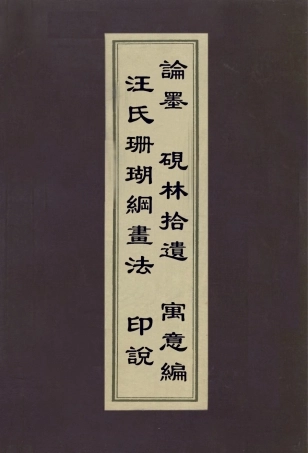 論墨　硯林拾遺　寓意編
汪氏珊瑚綱畫法　印說